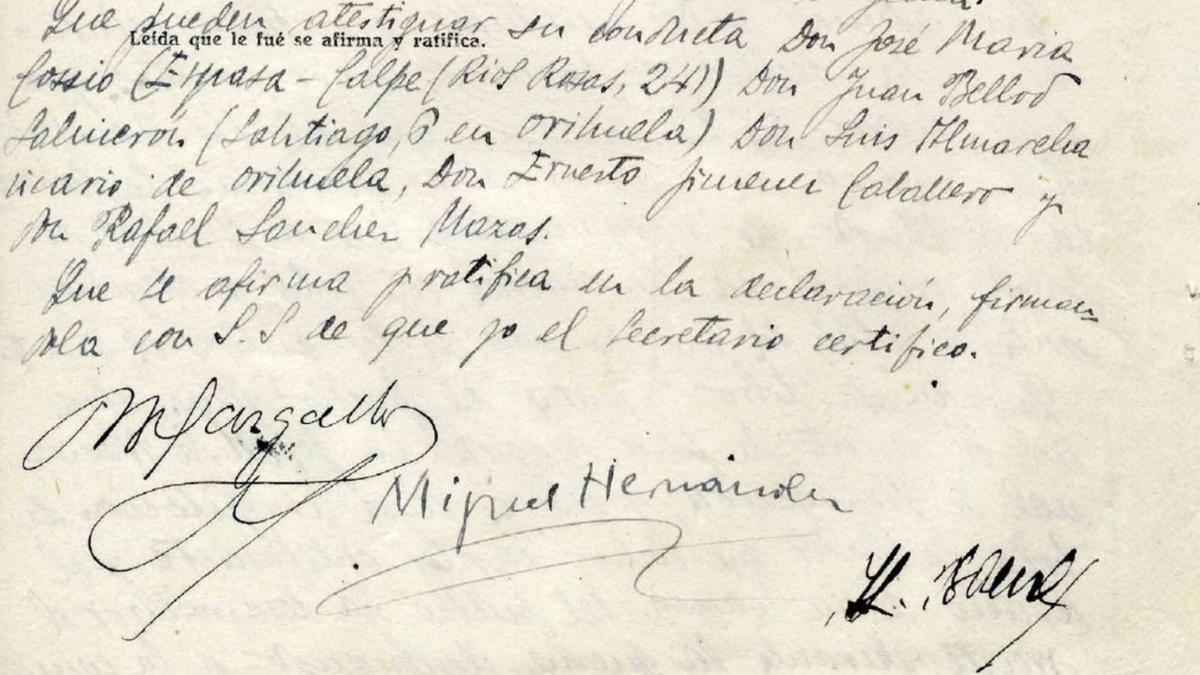 Que pueden atestiguar su conducta Don José Maria
Leída que le fué se afirma y ratifica.
Cossio (Espasa - Calpe (Rios Rosas, 24)) Don Juan Bellod
Salmerón (Santiago, 6 en Orihuela) Don Luis Almarcha
vicario de Orihuela, Don Ernesto Jimenez Caballero y
Don Rafael Sanchez Mazas.
Que se afirma y ratifica en la declaración, firman-
dola con S.S de que yo el Secretario certifico.
Margallo
Miguel Hernández